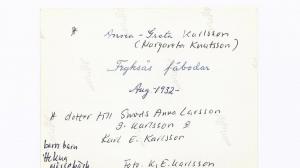 * Anna-Greta Karlsson
(Margareta Knutsson)
Fryksås fäbodar
Aug. 1932-
* dotter till Smeds Anna Larsson
g. Karlsson &
Karl E. Karlsson
barn barn
Helena
Foto: K.E. Karlsson